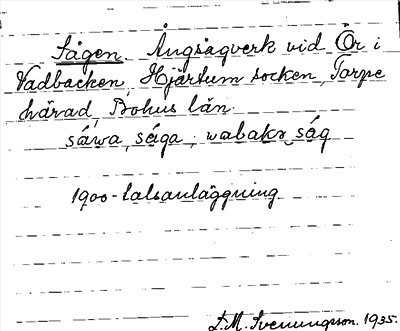 Sågen. Ångsågverk vid Ör i
Vadbacken, Hjärtum socken, Torpe
härad, Bohus län.
såwa, sága, wabakr ság
1900-talsanläggning.
L.M. Svenungsson. 1935.